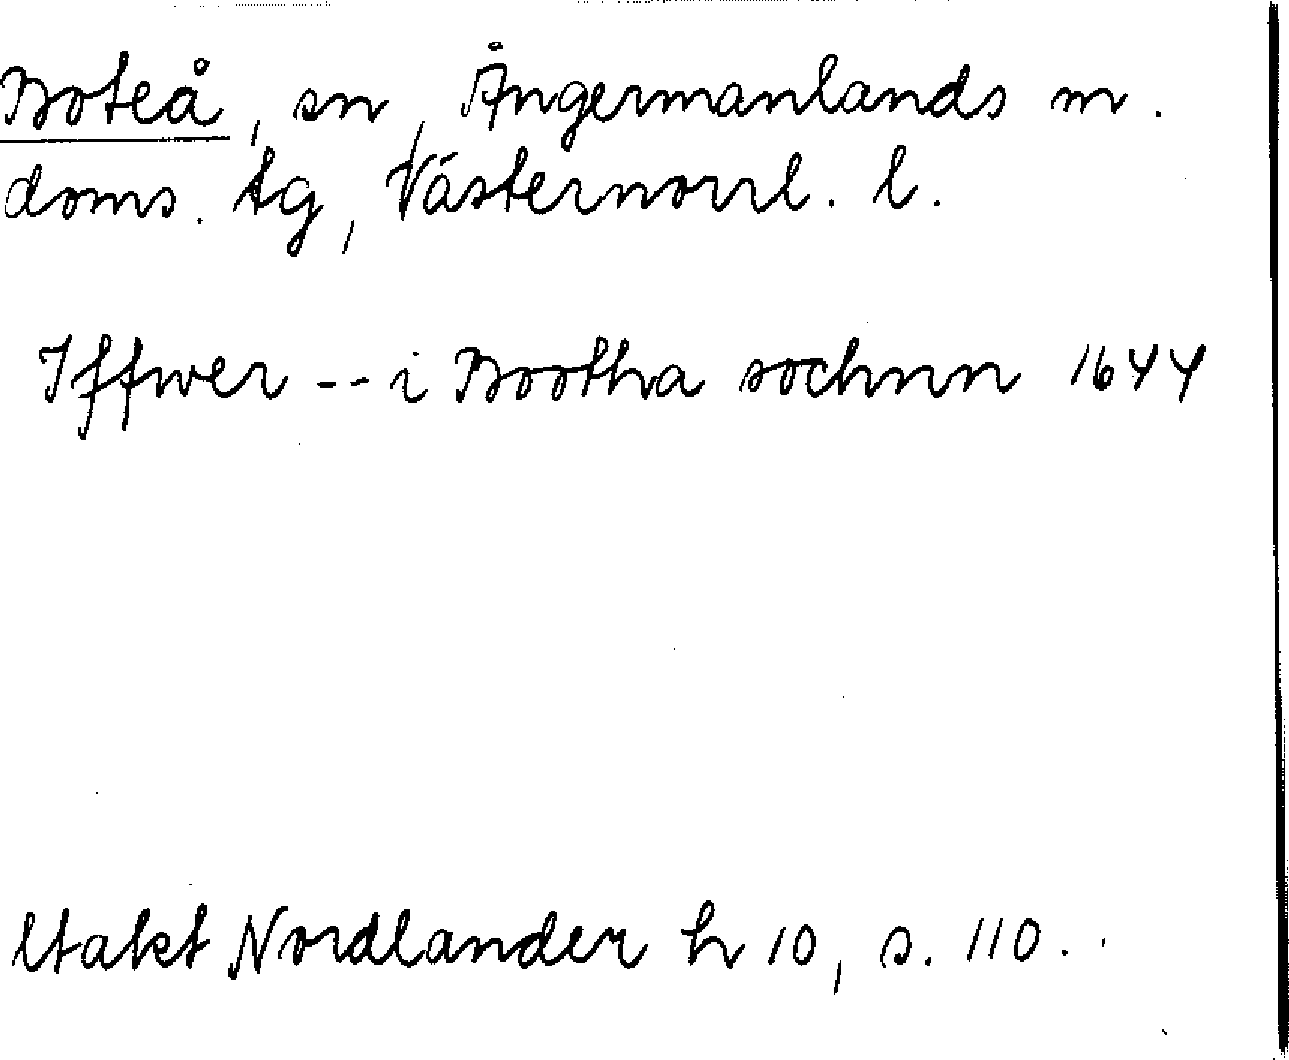 Boteå, sn, Ångermanlands m.
doms. tg, Västernorrl. l.
Iffwer -- i Bootha sochnn 1644
Utakt Nordlander h 10, s. 110.